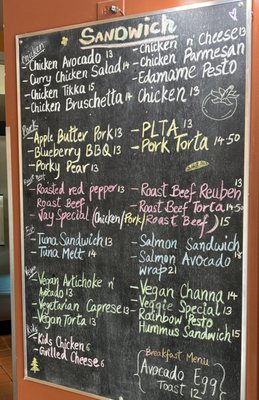 SANDWICH
Chicken
- Chicken Avocado 13
- Curry Chicken Salad 14
- Chicken Tikka 15
- Chicken Bruschetta 14
- Chicken n' Cheese 13
- Chicken Parmesan 14
- Edamame Pesto
Chicken 13
Pork
- Apple Butter Pork 13
- Blueberry BBQ 13
- Porky Pear 13
- PLTA 13
- Pork Torta 14.50
Roast Beef
- Roasted red pepper 13
Roast Beef
- Jay Special (Chicken/Pork/Roast Beef) 15
- Roast Beef Reuben 13
- Roast Beef Torta 14.50
Fish
- Tuna Sandwich 13
- Tuna Melt 14
- Salmon Sandwich 18
- Salmon Avocado
Wrap 21
Vegan
- Vegan Artichoke n'
Avocado 13
- Vegetarian Caprese 13
- Vegan Torta 13
- Vegan Channa 14
- Veggie Special 13
- Rainbow Pesto
Hummus Sandwich 15
Kids
- Kids Chicken 6
- Grilled Cheese 6
Breakfast Menu
Avocado Egg
Toast 12